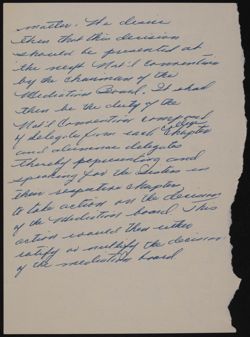 matter. We desire
then that this decision
should be presented at
the next Nat'l convention
by the chairman of the
Mediation Board. It shall
then be the duty of the
Nat'l Convention composed
of delegate from each chapter
and alumnae delegates
thereby representing and
speaking for the Sisters in
their respective chapters
to take action on the decision
of the Mediation board. This
action would then either
ratify or nullify the decision
of the mediation board